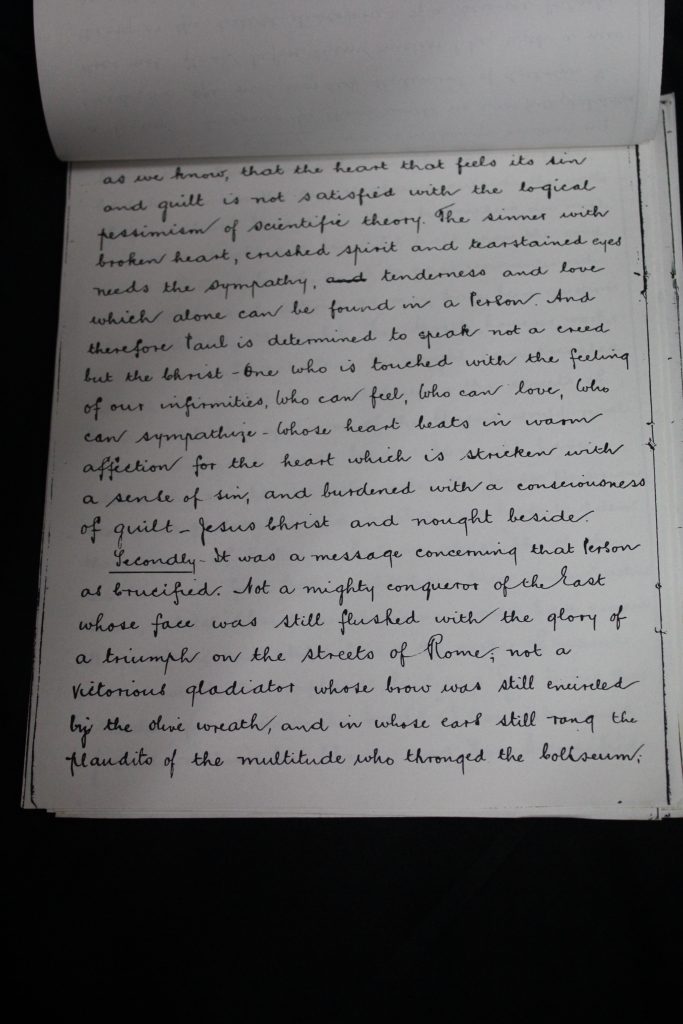 as we know, that the heart that feels its sin
and guilt is not satisfied with the logical
pessimism of scientific theory. The sinner with
broken heart, crushed spirit and tearstained eyes
needs the sympathy, and tenderness and love
which alone can be found in a Person. And
therefore Paul is determined to speak not a creed
but the Christ - One who is touched with the feeling
of our infirmities, Who can feel, Who can love, Who
can sympathize - Whose heart beats in warm
affection for the heart which is stricken with
a sense of sin, and burdened with a consciousness
of guilt - Jesus Christ and nought beside.
Secondly - It was a message concerning that Person
as Crucified. Not a mighty conqueror of the East
whose face was still flushed with the glory of
a triumph on the streets of Rome; not a
victorious gladiator whose brow was still encircled
by the olive wreath, and in whose ears still rang the
plaudits of the multitude who thronged the Coliseum;